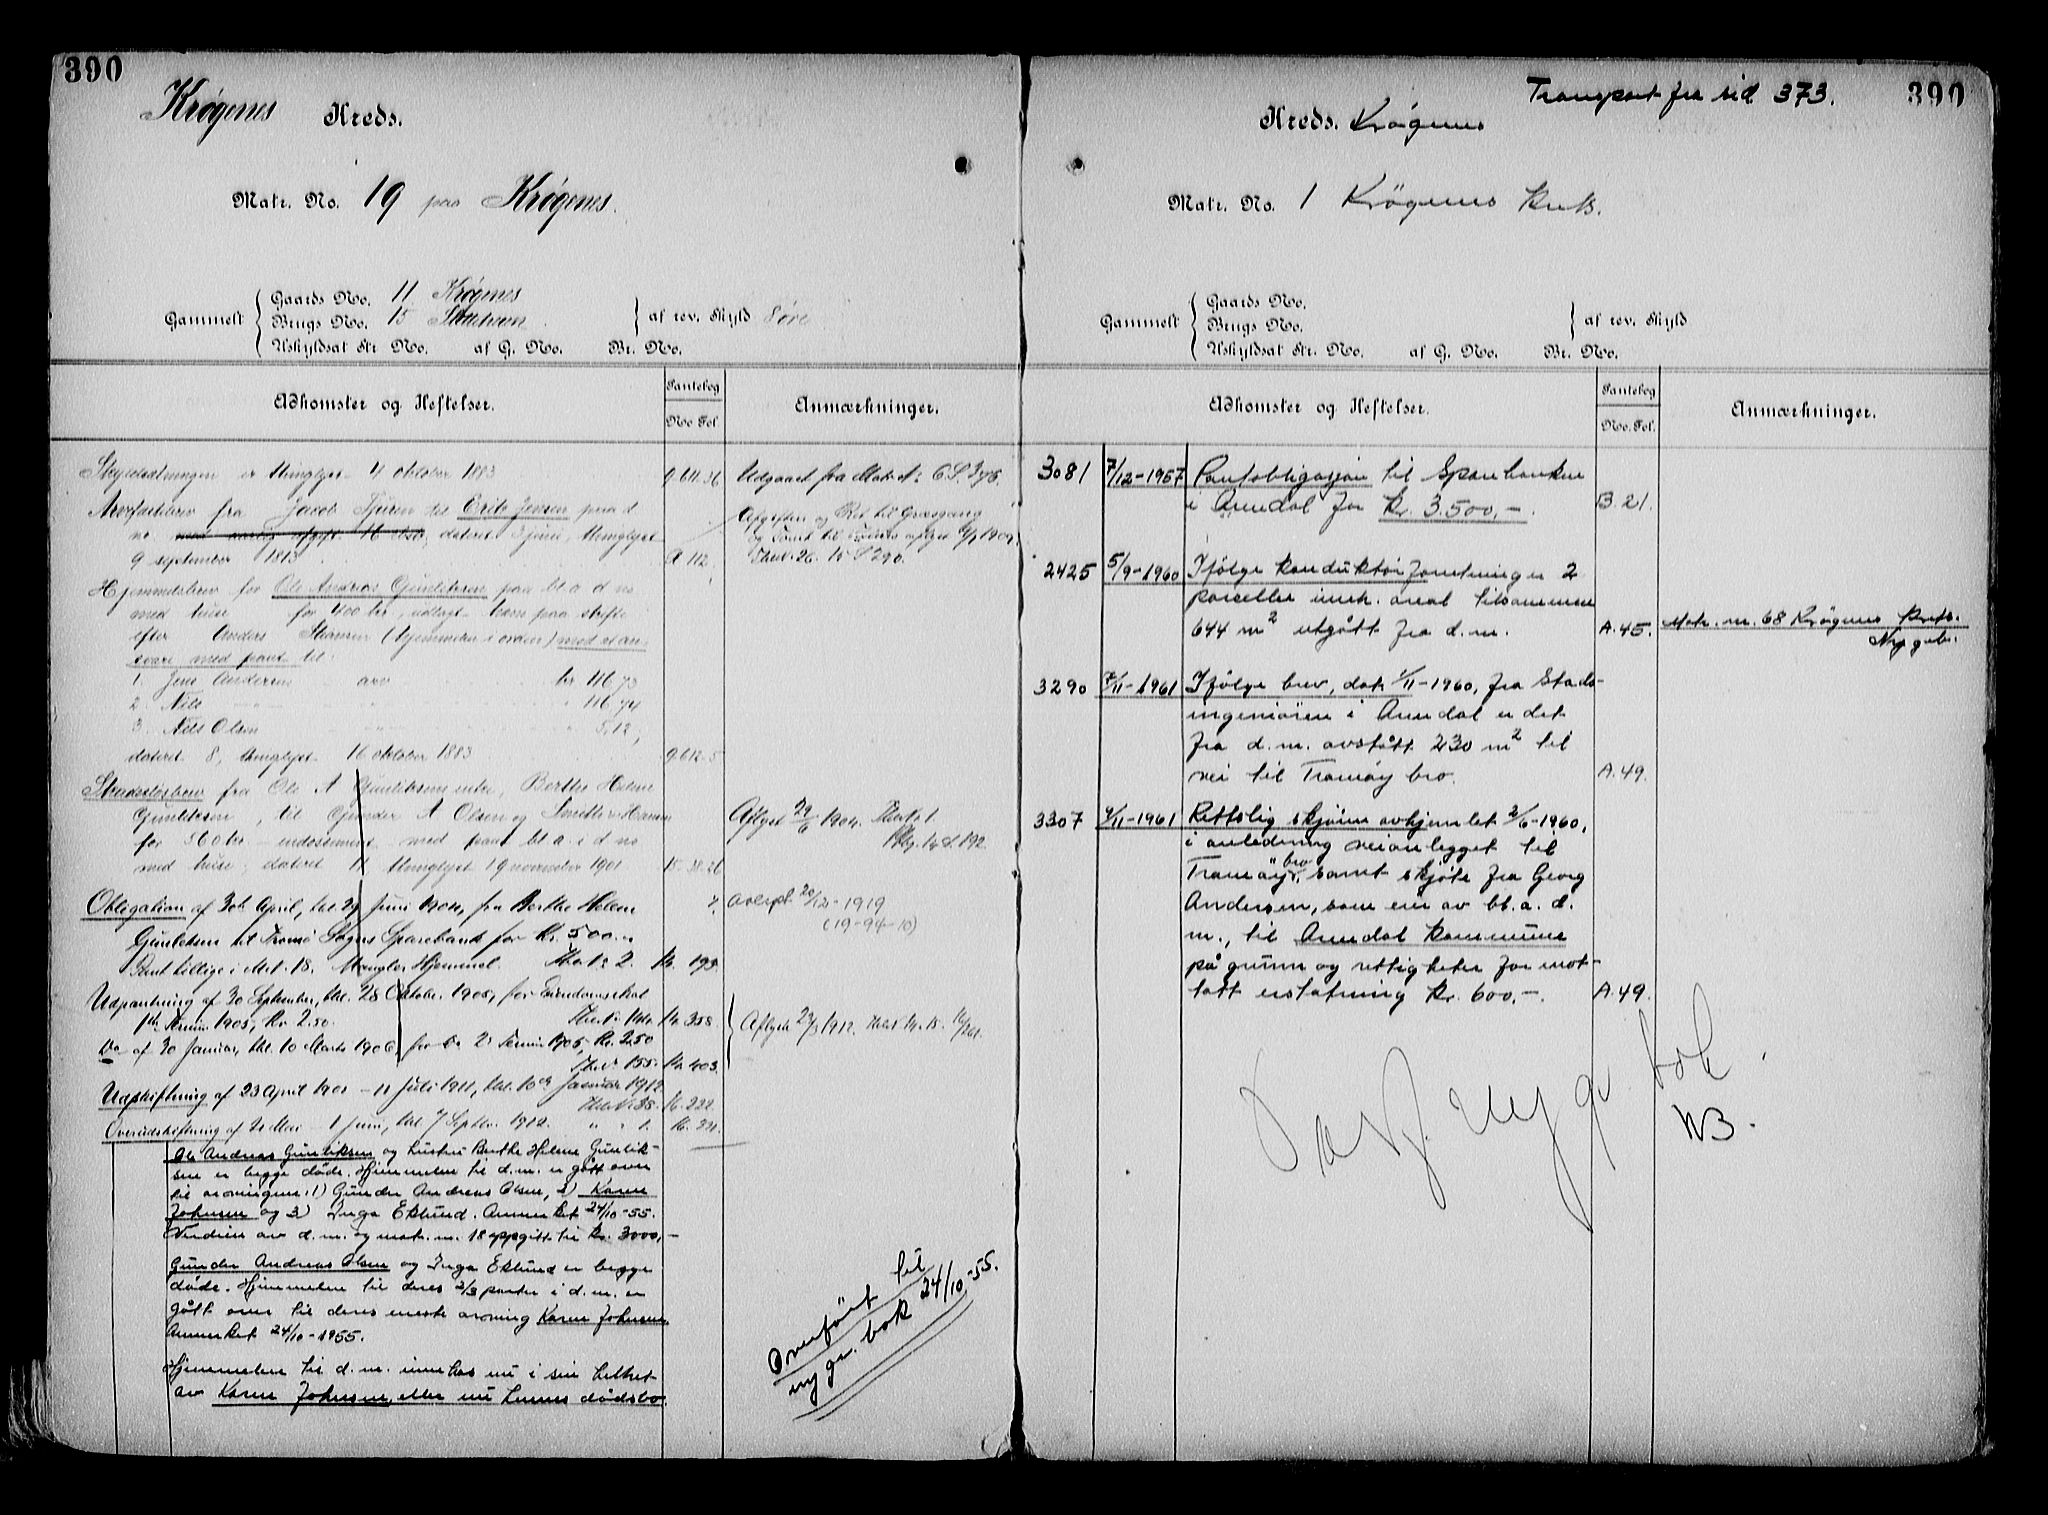 390
Krøgenes Kreds.
Matr. No. 19 paa Krøgenes.
Gammelt
Gaards No. 11 Krøgenes
Brugs No. 15
Uskyldsat Str. No. af G. No. Br. No.
af rev. Skyld 8 øre
Adkomster og Heftelser.
Pantebog
No. Fol.
Anmærkninger.
Skyldsætningen er thinglyst 4 oktober 1883
9.611.36
Udgaaet fra Matr. N: 6 S. 376.
Arvefæstebrev fra Jacob Tjuren til Erik Jensen paa d
no. med aarlig afgift 16 ; dateret 3 juni, thinglyst
9 september 1813
A 112
Afgiften og Ret til Græsgang
No. 26. 15 S 290.
Hjemmelsbrev for Ole Andreas Gunleksen paa bl. a d no
med huse for 400 kr, udlagt ham paa skifte
efter Anders Hansen (hjemmelen i orden) med at an-
svare med pant til:
1. Jens Andersen arv kr 116.73
2. Nils " 116.74
3. Nils Olsen " 5.12,
dateret 8, thinglyst 16 oktober 1883
9.612.5
Skadesløsbrev fra Ole A Gunleksens enke, Berthe Helene
Gunleksen, til Gunder A Olsen og Smith & Hansen
for 560 kr endossement med pant bl. a. i d no
med huse; dateret 11 thinglyst 19 november 1901
15. 38. 26
Aflyst 29/6 1904. No. 1.
Pbg. 16 S. 192.
Obligation af 30te April, thl. 29 Juni 1904, fra Berthe Helene
Gunleksen til Tromø Sogns Sparebank for Kr. 500.
Pant tillige i Mat. 18. Mangler Hjemmel. No. 2. 16. 193.
avlyst 20/12-1919
(19-94-10)
Udpantning af 30 September, thl. 28 Oktober 1905, for Eiendomsskat
1ste Termin 1905, Kr. 2.50. 16. 358.
Do af 30 Januar, thl. 10 Marts 1906, for Do 2. Termin 1905, Kr. 2.50
No. 155. 16. 403.
Aflyst 23/3 1912.
Udskiftning af 23 April 1901 - 11 Juli 1911, thl. 10de Januar 1912.
No. 38. 16. 222.
Overudskiftning af 21 Mai - 1 Juni, thl 7 Septbr. 1912. " " 1. 16.
Ole Andreas Gunliksen og hustru Berthe Helene Gunlik-
sen er begge døde. Hjemmelen til d.m. er gått over
til arvingene: 1) Gunder Andreas Olsen, 2) Karen
Johnsen og 3) Inga Eklund. Anmerket 24/10-55.
Verdien av d.m. og matr. nr. 18 oppgitt til kr. 3000,-
Gunder Andreas Olsen og Inga Eklund er begge
døde. Hjemmelen til deres 2/3 parter i d.m. er
gått over til deres eneste arving Karen Johnsen
Anmerket 24/10-1955.
Hjemmelen til d.m. innehas nu i sin helhet
av Karen Johnsen, eller nu hennes dødsbo.
Overført til
ny gr. bok 24/10-55.
Transport fra sid 373.
390
Kreds. Krøgenes
Matr. No. 1 Krøgenes Krets.
Gammelt
Gaards No.
Brugs No.
Uskyldsat Str. No. af G. No. Br. No.
af rev. Skyld
Adkomster og Heftelser.
Pantebog
No. Fol.
Anmærkninger.
3081 7/12-1957 Pantobligasjon til Sparebanken
i Arendal for kr. 3.500,-.
B.21.
2425 5/9-1960 Ifølge konduktørforretning er 2
parseller innh. areal tilsammen
644 m2 utgått fra d.m.
A.45.
Matr. nr. 68 Krøgenes Krets.
Ny gr.b.
3290 7/11-1961 Ifølge brev, dat. 1/11-1960, fra Stads-
ingeniøren i Arendal er det
fra d.m. avstått 230 m2 til
vei til Tromøy bro.
A.49.
3307 9/11-1961 Rettslig skjønn avhjemlet 2/6-1960,
i anledning veianlegget til
Tromøy bro, samt skjøte fra Georg
Andersen, som eier av bl.a. d.
m., til Arendal kommune
på grunn og rettigheter for mot-
tatt erstatning kr. 600,-.
A.49.
Ny gr bok
NB.